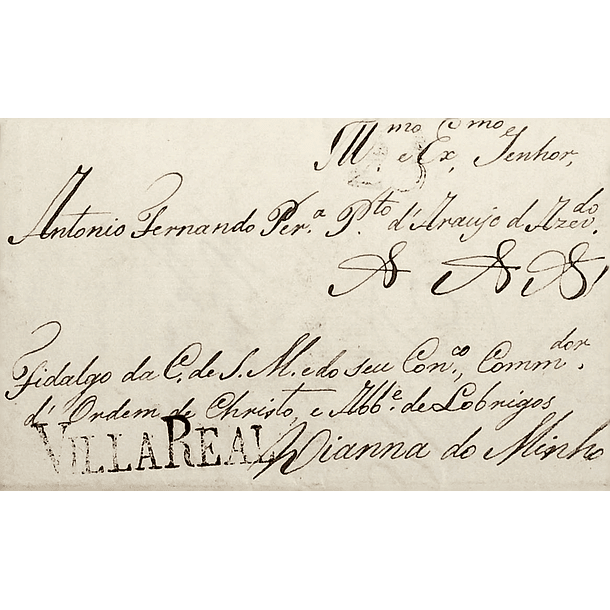 Ill.mo e Ex.mo Senhor,
Antonio Fernando Per.a P.to d'Araujo d'Azev.do
A A A
Fidalgo da C. de S. M. e do seu Con.co, Comm.dor
d'Ordem de Christo, e Abb.e de Lobrigos
VILLA REAL Vianna do Minho